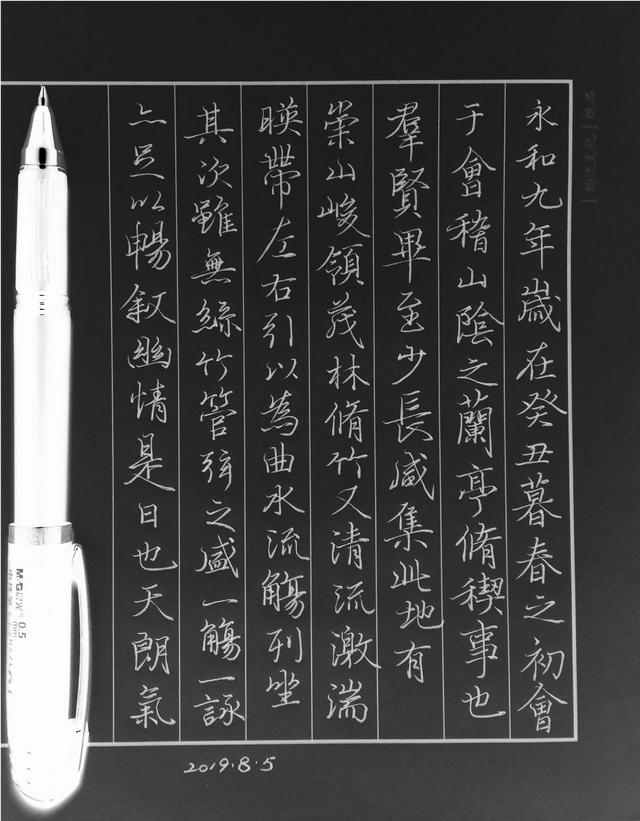 永和九年歲在癸丑暮春之初會
于會稽山陰之蘭亭脩稧事也
羣賢畢至少長咸集此地有
崇山峻領茂林脩竹又清流激湍
暎帶左右引以為曲水流觴列坐
其次雖無絲竹管弦之盛一觴一詠
亦足以暢敘幽情是日也天朗氣
2019.8.5
M&G 0.5
mm